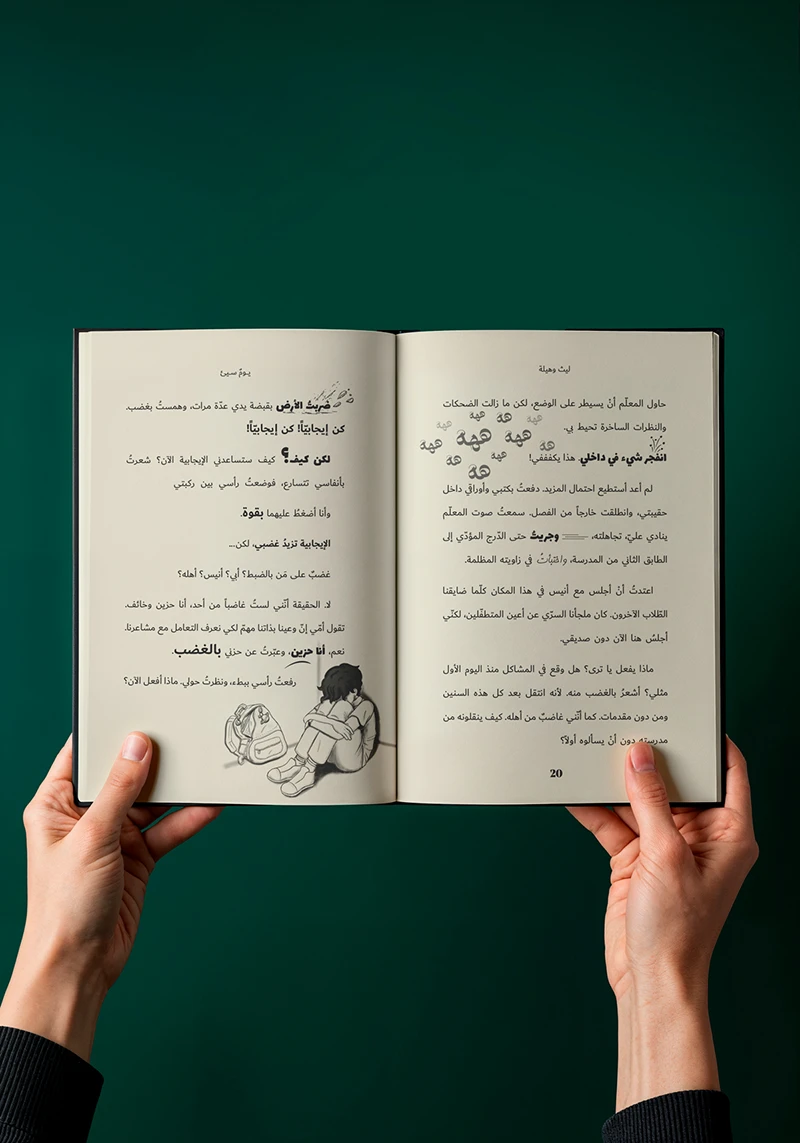 ليث وهيلة
حاول المعلّم أنْ يسيطر على الوضع، لكن ما زالت الضحكات
والنظرات الساخرة تحيط بي.
ههه ههه ههه
ههه ههه ههه ههه
هه ههه هه
هه
انفجر شيء في داخلي. هذا يكففففي!
لم أعد أستطيع احتمال المزيد. دفعتُ بكتبي وأوراقي داخل
حقيبتي، وانطلقت خارجاً من الفصل. سمعتُ صوت المعلّم
ينادي عليّ، تجاهلته، وجريتُ حتى الدّرج المؤدّي إلى
الطابق الثاني من المدرسة، واختبأتُ في زاويته المظلمة.
اعتدتُ أنْ أجلس مع أنيس في هذا المكان كلّما ضايقنا
الطّلاب الآخرون. كان ملجأنا السرّي عن أعين المتطفّلين، لكنّي
أجلسُ هنا الآن دون صديقي.
ماذا يفعل يا ترى؟ هل وقع في المشاكل منذ اليوم الأول
مثلي؟ أشعرُ بالغضب منه. لأنه انتقل بعد كل هذه السنين
ومن دون مقدمات. كما أنّني غاضبٌ من أهله. كيف ينقلونه من
مدرسته دون أنْ يسألوه أولاً؟
20
يومٌ سيئ
ضربتُ الأرض بقبضة يدي عدّة مرات، وهمستُ بغضب.
كن إيجابيّاً! كن إيجابيّاً!
لكن كيف؟ كيف ستساعدني الإيجابية الآن؟ شعرتُ
بأنفاسي تتسارع، فوضعتُ رأسي بين ركبتي
وأنا أضغطُ عليهما بقوة.
الإيجابية تزيدُ غضبي، لكن...
غضبٌ على مَن بالضبط؟ أبي؟ أنيس؟ أهله؟
لا. الحقيقة أنّني لستُ غاضباً من أحد، أنا حزين وخائف.
تقول أمّي إنّ وعينا بذاتنا مهمّ لكي نعرف التعامل مع مشاعرنا.
نعم، أنا حزين، وعبّرتُ عن حزني بالغضب.
رفعتُ رأسي ببطء، ونظرتُ حولي. ماذا أفعل الآن؟